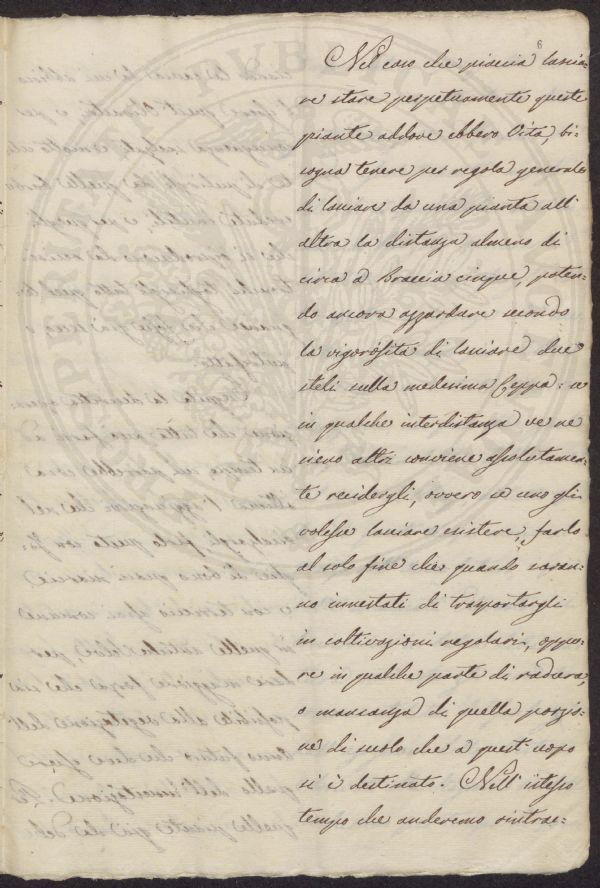 6
Nel caso che piaccia lascia=
re stare perpetuamente queste
piante addove ebbero Vita, bi=
sogna tenere per regola generale
di lasciare da una pianta all'
altra la distanza almeno di
circa a Braccia cinque, poten=
do ancora azzardare secondo
la vigorosità di lasciare due
steli sulla medesima Ceppa: e
in qualche interdistanza ve ne
sieno altri conviene assolutamen=
te recidergli, ovvero se uno gli
volesse lasciare esistere, farlo
al solo fine che quando saran=
no innestati di trasportargli
in coltivazioni regolari, oppu=
re in qualche parte di radura,
o mancanza di quella porzio=
ne di suolo che a quest' uopo
si è destinato. Nell' istesso
tempo che anderemo rintrac=